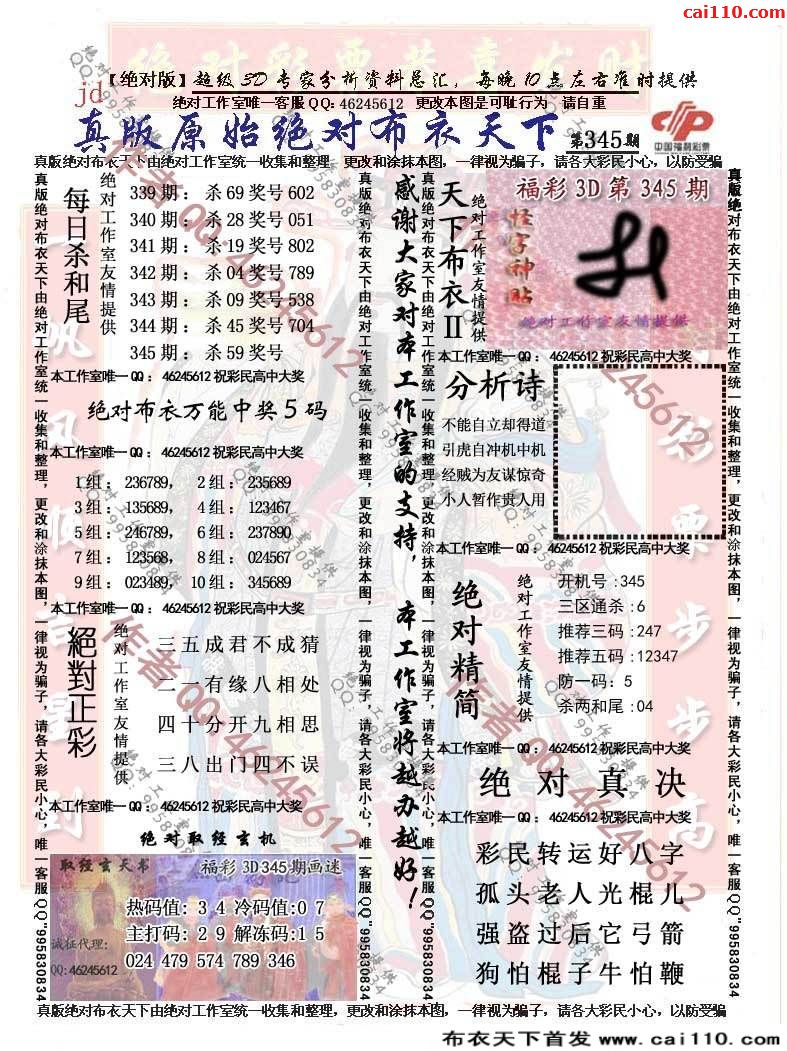 cai110.com
绝对彩票恭喜发财
【绝对版】超级3D专家分析资料总汇，每晚10点左右准时提供
jd
绝对工作室唯一客服QQ:46245612 更改本图是可耻行为 请自重
真版原始绝对布衣天下 第345期
中国福利彩票
真版绝对布衣天下由绝对工作室统一收集和整理，更改和涂抹本图，一律视为骗子，请各大彩民小心，以防受骗
真版绝对布衣天下由绝对工作室统一收集和整理，更改和涂抹本图，一律视为骗子，请各大彩民小心，唯一客服QQ"995830834
每日杀和尾
绝对工作室友情提供
339期：杀69奖号602
340期：杀28奖号051
341期：杀19奖号802
342期：杀04奖号789
343期：杀09奖号538
344期：杀45奖号704
345期：杀59奖号
本工作室唯一QQ：46245612祝彩民高中大奖
绝对布衣万能中奖5码
本工作室唯一QQ：46245612祝彩民高中大奖
1组：236789，2组：235689
3组：135689，4组：123467
5组：246789，6组：237890
7组：123568，8组：024567
9组：023489，10组：345689
本工作室唯一QQ：46245612祝彩民高中大奖
絕對正彩
绝对工作室友情提供
三五成君不成猜
二一有缘八相处
四十分开九相思
三八出门四不误
本工作室唯一QQ：46245612祝彩民高中大奖
绝对取经玄机
取经玄天书
福彩3D345期画迷
热码值：34冷码值:07
主打码：29解冻码:15
024 479 574 789 346
诚征代理:
QQ:46245612
真版绝对布衣天下由绝对工作室统一收集和整理，更改和涂抹本图，一律视为骗子，请各大彩民小心，唯一客服QQ"995830834
感谢大家对本工作室的支持，本工作室将越办越好！
真版绝对布衣天下由绝对工作室统一收集和整理，更改和涂抹本图，一律视为骗子，请各大彩民小心，唯一客服QQ"995830834
天下布衣II
绝对工作室友情提供
福彩3D第345期
怪字神贴
绝对工作室友情提供
本工作室唯一QQ：46245612祝彩民高中大奖
分析诗
不能自立却得道
引虎自冲机中机
经贼为友谋惊奇
小人暂作贵人用
本工作室唯一QQ：46245612祝彩民高中大奖
绝对精简
绝对工作室友情提供
开机号:345
三区通杀:6
推荐三码:247
推荐五码:12347
防一码：5
杀两和尾:04
本工作室唯一QQ：46245612祝彩民高中大奖
绝对真决
本工作室唯一QQ：46245612祝彩民高中大奖
彩民转运好八字
孤头老人光棍儿
强盗过后它弓箭
狗怕棍子牛怕鞭
真版绝对布衣天下由绝对工作室统一收集和整理，更改和涂抹本图，一律视为骗子，请各大彩民小心，唯一客服QQ"995830834
真版绝对布衣天下由绝对工作室统一收集和整理，更改和涂抹本图，一律视为骗子，请各大彩民小心，以防受骗
布衣天下首发 www.cai110.com
作者QQ:46245612
绝对工作室提供
QQ:995830834